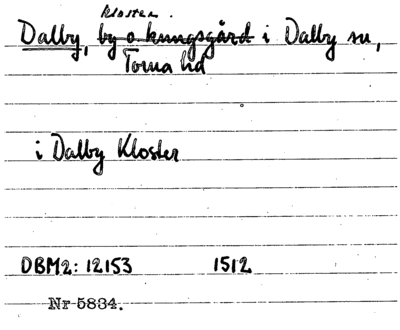 kloster.
Dalby, by o kungsgård i Dalby sn,
Torna hd
i Dalby Kloster
DBM2: 12153 1512
Nr 5834.